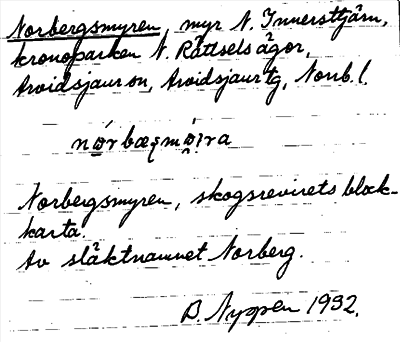 Norbergsmyren, myr N. Innersttjärn,
kronoparken N. Rättsels ägor,
Arvidsjaur sn, Arvidsjaur tg, Norrb. l.
Norbergsmyren, skogsrevirets block-
karta.
Av släktnamnet Norberg.
B. Nyppen 1932.